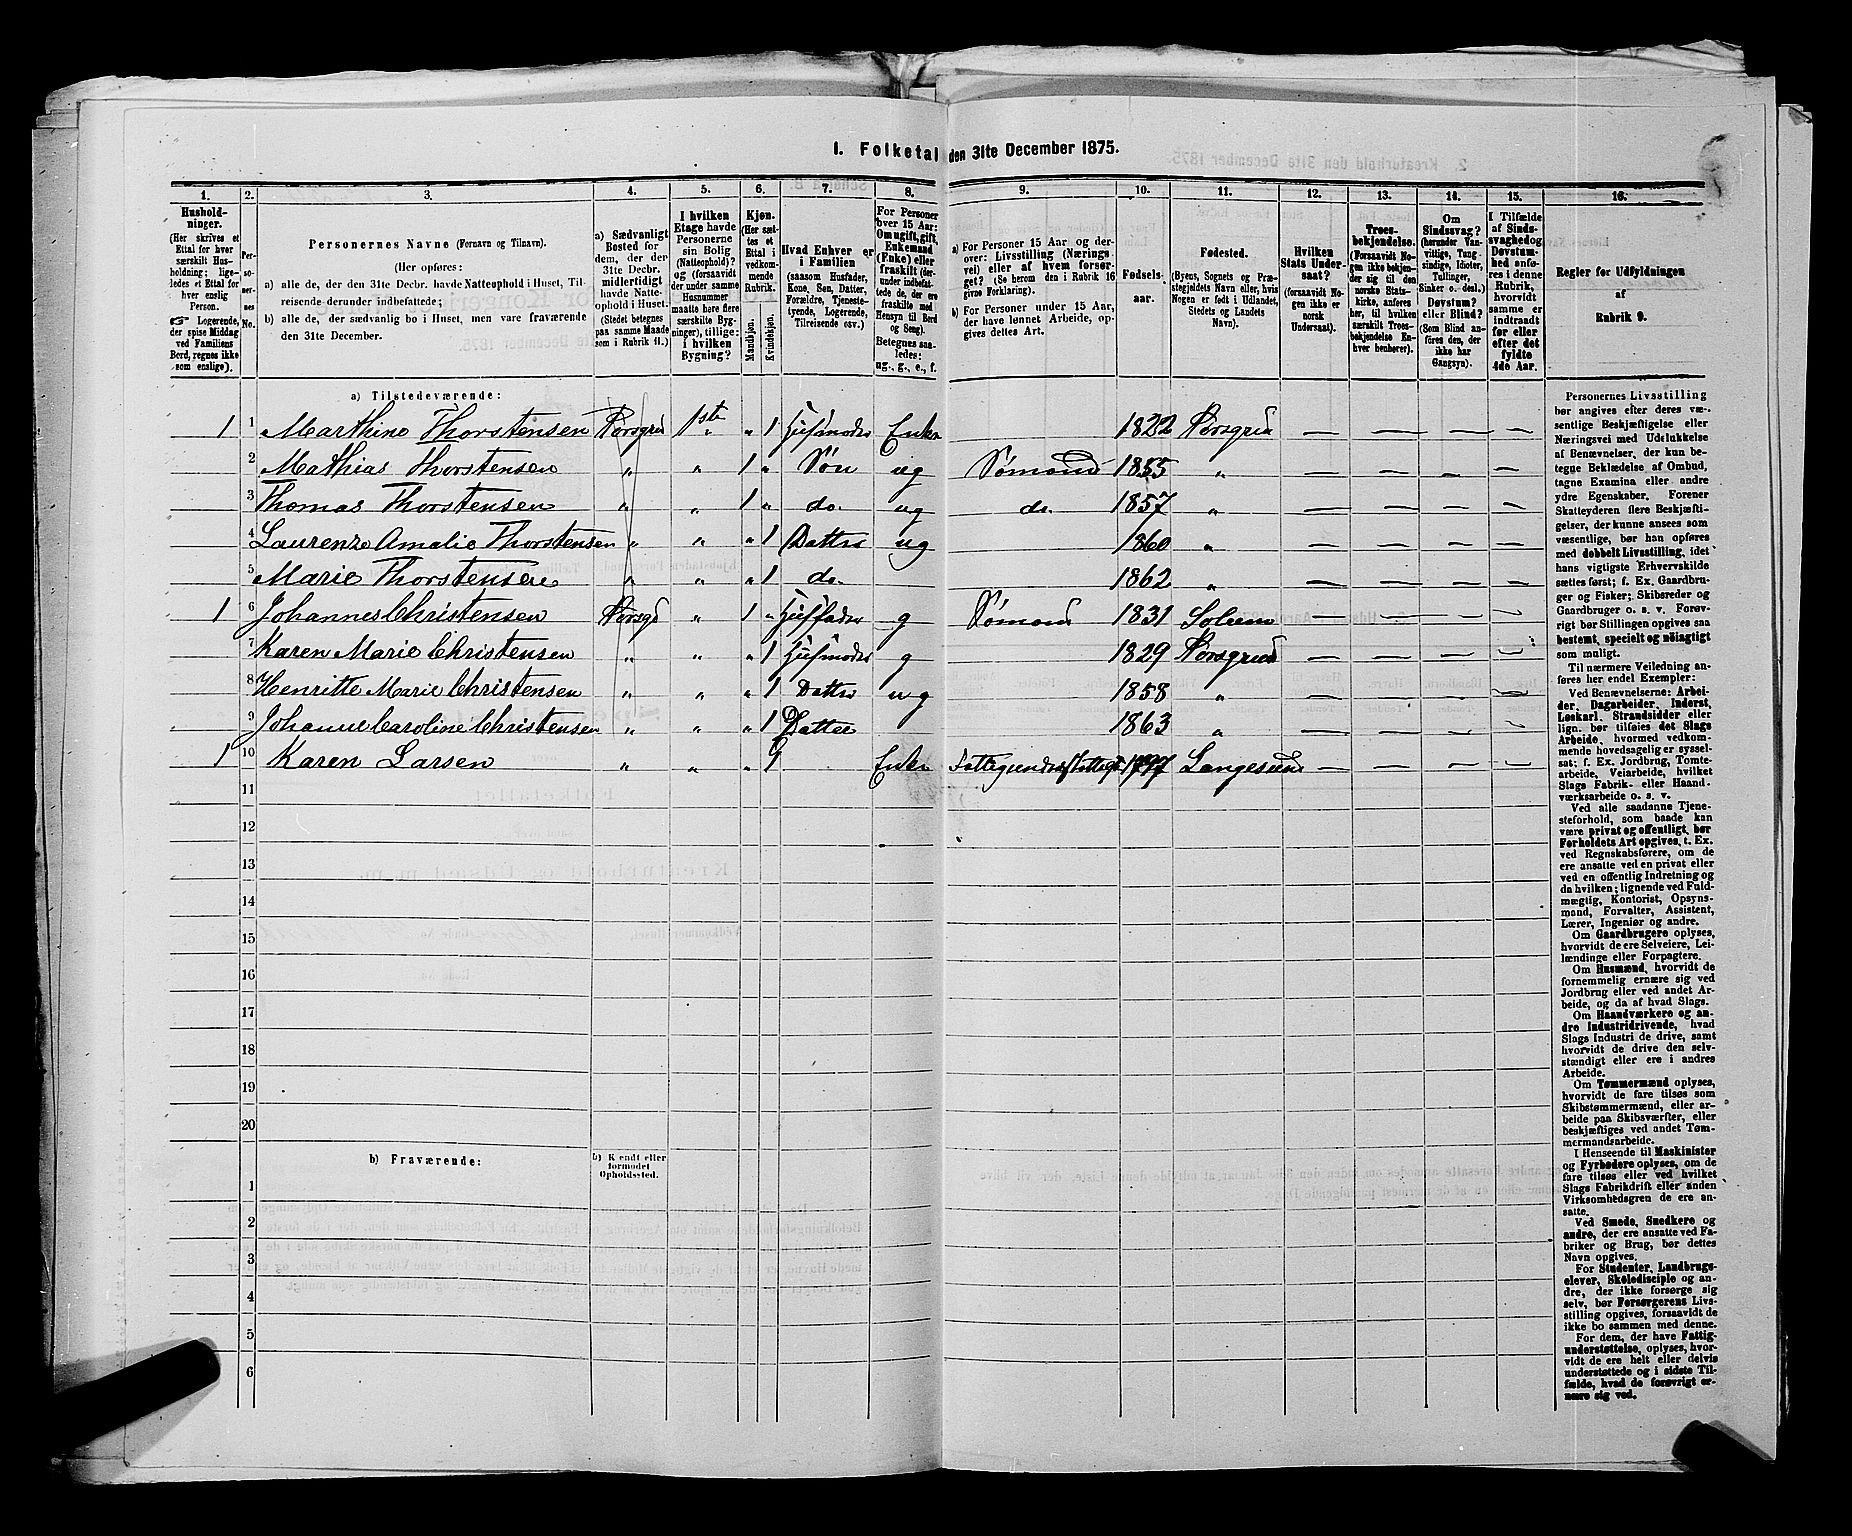 1. Folketal den 31te December 1875.
1. 2. 3. 4. 5. 6. 7. 8. 9. 10. 11. 12. 13. 14. 15. 16.
Hushold-
ninger.
(Her skrives et
Ettal for hver
særskilt Hus-
holdning; lige-
ledes et Ettal for
hver enslig
Person.
☞ Logerende,
der spise Middag
ved Familiens
Bord, regnes ikke
som enslige).
Per-
so-
ner-
nes
No.
Personernes Navne (Fornavn og Tilnavn).
(Her opføres:
a) alle de, der den 31te Decbr. havde Natteophold i Huset, Til-
reisende derunder indbefattede;
b) alle de, der sædvanlig bo i Huset, men vare fraværende
den 31te December.
a) Sædvanligt
Bosted for
dem, der den
31te Decbr.
midlertidigt
havde Natte-
ophold i Huset.
(Stedet betegnes
paa samme Maade
som i Rubrik 11.)
I hvilken
Etage havde
Personerne
sin Bolig
(Natteophold)?
og (forsaavidt
der under samme
Husnummer
maatte høre flere
særskilte Byg-
ninger), tillige:
i hvilken
Bygning?
Kjøn.
(Her sæt-
tes et
Ettal i
vedkom-
mende
Rubrik.
Mandkjøn.
Kvindekjøn.
Hvad Enhver er
i Familien
(saasom Husfader,
Kone, Søn, Datter,
Forældre, Tjeneste-
tyende, Logerende,
Tilreisende osv.)
For Personer
over 15 Aar:
Om ugift, gift,
Enkemand
(Enke) eller
fraskilt (der-
under indbefat-
tede de, der ere
fraskilte med
Hensyn til Bord
og Seng).
Betegnes saa-
ledes:
ug., g., e., f.
a) For Personer 15 Aar og der-
over: Livsstilling (Nærings-
vei) eller af hvem forsør-
get? (Se herom den i Rubrik 16
givne Forklaring).
b) For Personer under 15 Aar,
der have lønnet Arbeide, op-
gives dettes Art.
Fødsels-
aar.
Fødested.
(Byens, Sognets og Præ-
stegjeldets Navn eller, hvis
Nogen er født i Udlandet,
Stedets og Landets
Navn).
Hvilken
Stats Under-
saat?
(forsaavidt No-
gen ikke er
norsk
Undersaat).
Troes-
bekjendelse.
(Forsaavidt No-
gen ikke bekjen-
der sig til den
norske Stats-
kirke, anføres
her, til hvilken
særskilt Troes-
bekjendelse En-
hver henhører).
Om
Sindssvag?
(herunder Van-
vittige, Tung-
sindige, Idioter,
Tullinger,
Sinker o. desl.)
Døvstum?
eller Blind?
(Som Blind an-
føres den, der
ikke har
Gangsyn).
I Tilfælde
af Sinds-
svaghed og
Døvstum-
hed anfø-
res i denne
Rubrik,
hvorvidt
samme er
indtraadt
før eller
efter det
fyldte
4de Aar.
Regler for Udfyldningen
af
Rubrik 9.
a) Tilstedeværende:
1 1 Marthine Thorstensen Porsgrd 1ste „ 1 Husmoder Enke 1822 Porsgrund — — — —
2 Mathias Thorstensen „ „ 1 „ Søn ug Sømand 1855 „ — — — —
3 Thomas Thorstensen „ „ 1 „ do. ug do. 1857 „ — — — —
4 Laurenze Amalie Thorstensen „ „ „ 1 Datter ug 1860 „ — — — —
5 Marie Thorstensen „ „ „ 1 do. 1862 „ — — — —
1 6 Johannes Christensen Porsgrd „ 1 „ Husfader g Sømand 1831 Solum — — — —
7 Karen Marie Christensen „ „ „ 1 Husmoder g 1829 Porsgrund — — — —
8 Henritte Marie Christensen „ „ „ 1 Datter ug 1858 „ — — — —
9 Johanne Caroline Christensen „ „ „ 1 Datter 1863 „ — — — —
1 10 Karen Larsen „ „ „ 1 Enke 1797 Langesund — — — —
11
12
13
14
15
16
17
18
19
20
b) Fraværende: b) Kjendt eller
formodet
Opholdssted.
1
2
3
4
5
6
Personernes Livsstilling
bør angives efter deres væ-
sentlige Beskjæftigelse eller
Næringsvei med Udelukkelse
af Benævnelser, der kun be-
tegne Beklædelse af Ombud,
tagne Examina eller andre
ydre Egenskaber. Forener
Skatteyderen flere Beskjæfti-
gelser, der kunne ansees som
væsentlige, bør han opføres
med dobbelt Livsstilling, idet
hans vigtigste Erhvervskilde
sættes først; f. Ex. Gaardbru-
ger og Fisker; Skibsreder og
Gaardbruger o. s. v. Forøv-
rigt bør Stillingen opgives saa
bestemt, specielt og nöiagtigt
som muligt.
Til nærmere Veiledning an-
føres her endel Exempler:
Ved Benævnelserne: Arbei-
der, Dagarbeider, Inderst,
Løskarl, Strandsidder eller
lign. bør tilføies det Slags
Arbeide, hvormed vedkom-
mende hovedsagelig er syssel-
sat; f. Ex. Jordbrug, Tomte-
arbeide, Veiarbeide, hvilket
Slags Fabrik- eller Haand-
værksarbeide o. s. v.
Ved alle saadanne Tjene-
steforhold, som baade kan
være privat og offentligt, bør
Forholdets Art opgives, t. Ex.
ved Regnskabsførere, om de
ere ansatte ved en privat eller
ved en offentlig Indretning og
da hvilken; lignende ved Fuld-
mægtig, Kontorist, Opsyns-
mand, Forvalter, Assistent,
Lærer, Ingeniør og andre.
Om Gaardbrugere oplyses,
hvorvidt de ere Selveiere, Lei-
lændinge eller Forpagtere.
Om Husmænd, hvorvidt de
fornemmelig ernære sig ved
Jordbrug eller ved andet Ar-
beide, og da af hvad Slags.
Om Haandværkere og an-
dre Industridrivende, hvad
Slags Industri de drive, samt
hvorvidt de drive den selv-
stændigt eller ere i andres
Arbeide.
Om Tømmermænd oplyses,
hvorvidt de fare tilsøs som
Skibstømmermænd, eller ar-
beide paa Skibsværfter, eller
beskjæftiges ved andet Tøm-
mermandsarbeide.
I Henseende til Maskinister
og Fyrbødere oplyses, om de
fare tilsøs eller ved hvilket
Slags Fabrikdrift eller anden
Virksomhedsgren de ere an-
satte.
Ved Smede, Snedkere og
andre, der ere ansatte ved Fa-
briker og Brug, bør dettes
Navn opgives.
For Studenter, Landbrugs-
elever, Skoledisciple og an-
dre, der ikke forsørge sig
selv, bør Forsørgerens Livs-
stilling opgives, forsaavidt de
ikke bo sammen med denne.
For dem, der have Fattig-
understøttelse, oplyses, hvor-
vidt de ere helt eller delvis
understøttede og i sidste Til-
fælde, hvad de forøvrigt er-
nære sig ved.